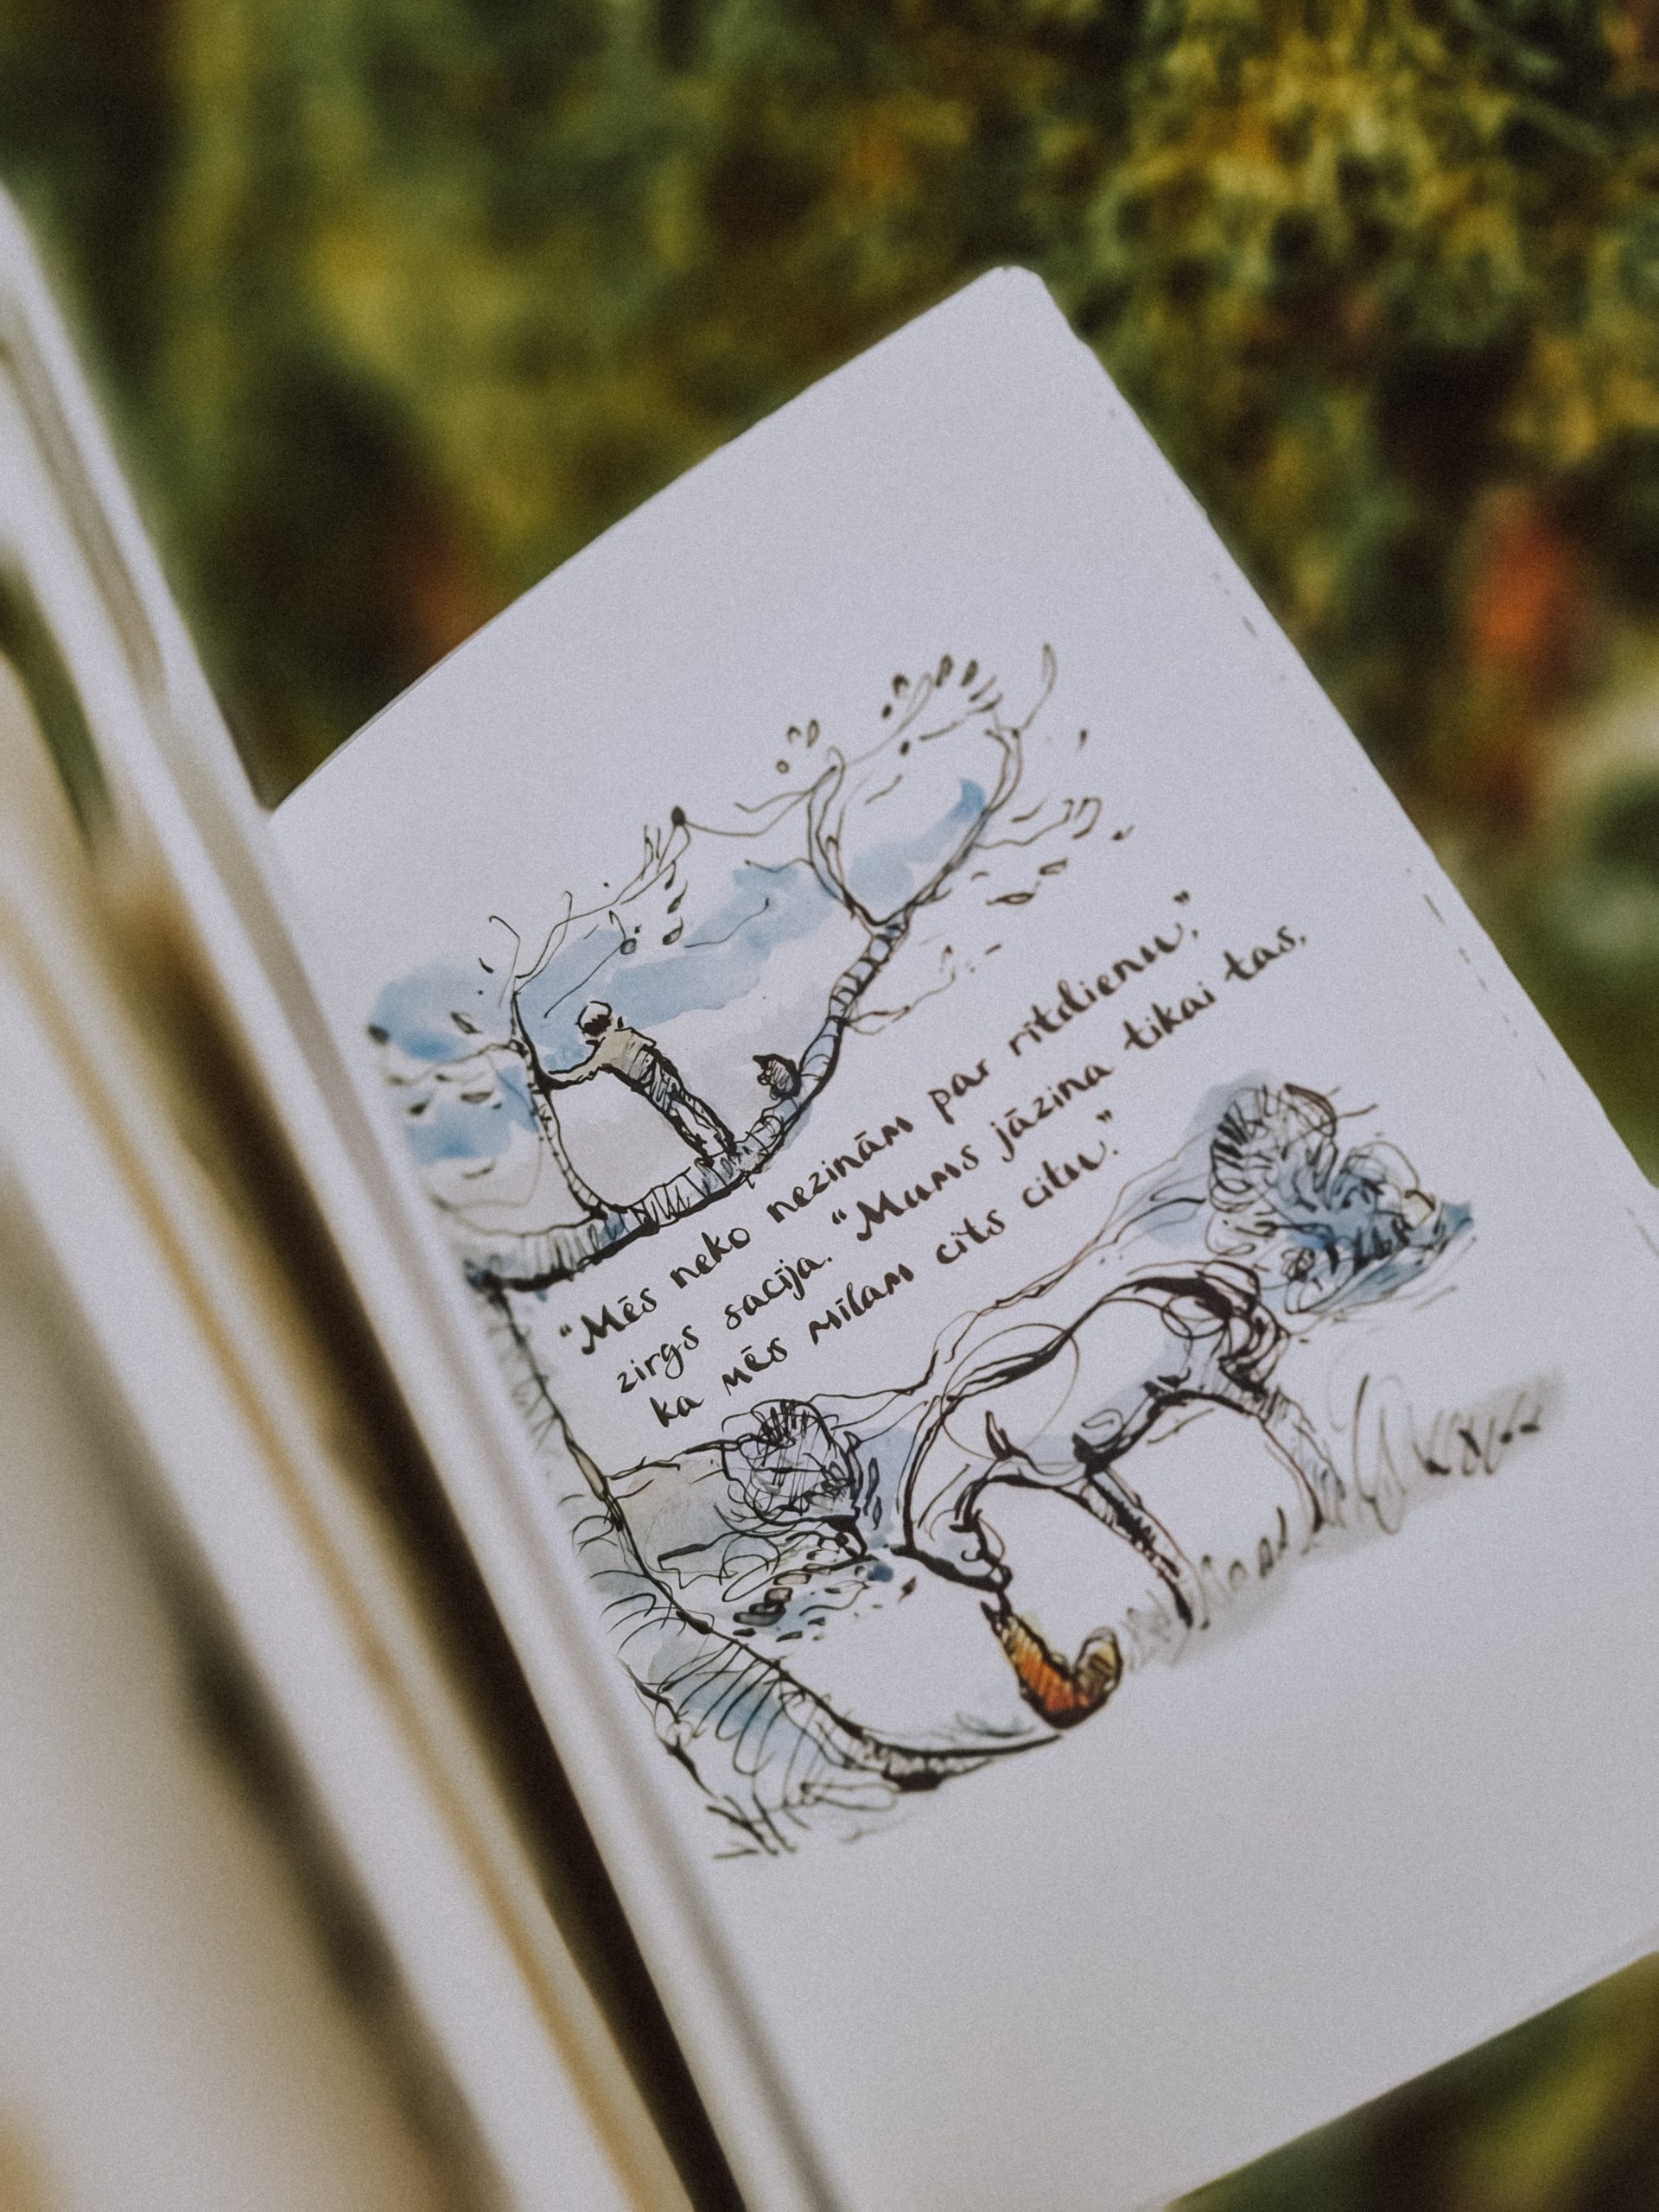 “Mēs neko nezinām par rītdienu,”
zirgs sacīja. “Mums jāzina tikai tas,
ka mēs mīlam cits citu.”